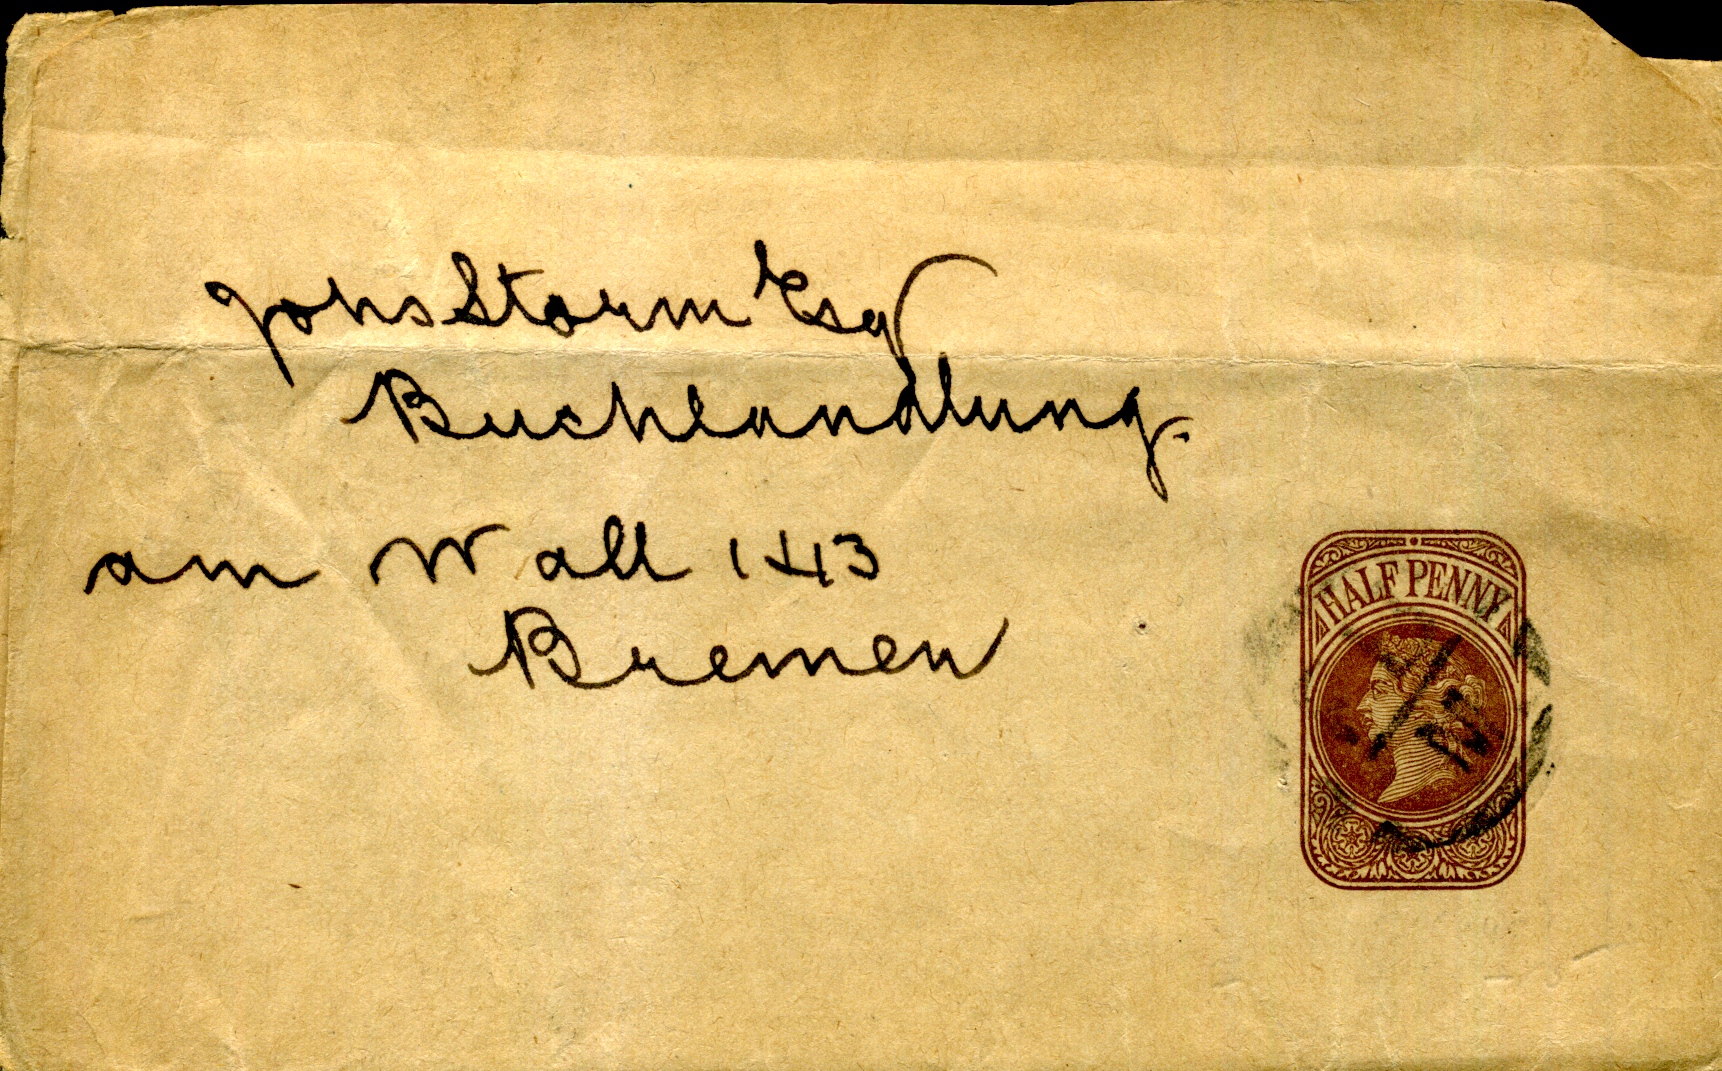 Johs Storm Esq
Buchhandlung.
am Wall 143
Bremen
HALF PENNY